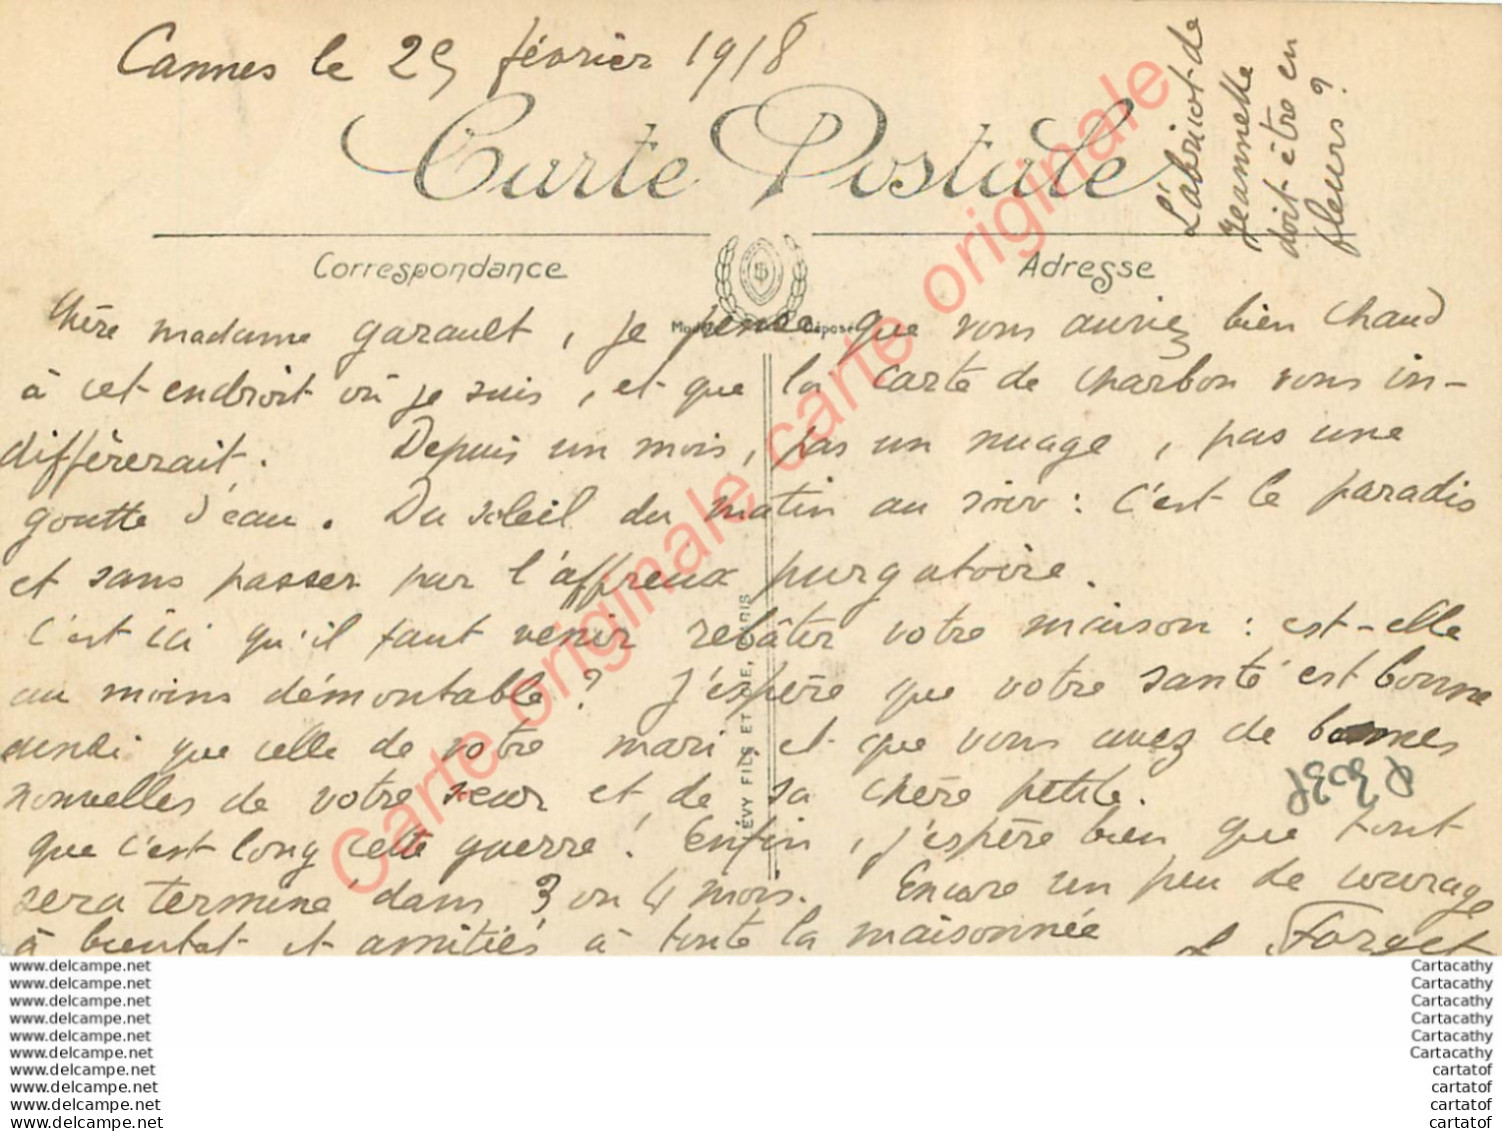 Cannes le 25 février 1918
Carte Postale
L'abricot de
Jeannette
doit être en
fleurs ?
Correspondance
Adresse
Chère madame Garault, je pense que vous auriez bien chaud
à cet endroit où je suis, et que la carte de charbon vous in-
diffèrerait. Depuis un mois, pas un nuage, pas une
goutte d'eau. Du soleil du matin au soir : c'est le paradis
et sans passer par l'affreux purgatoire.
C'est ici qu'il faut venir rebâtir votre maison : est-elle
au moins démontable ? J'espère que votre santé est bonne
ainsi que celle de votre mari et que vous avez de bonnes
nouvelles de votre sœur et de sa chère petite.
Que c'est long cette guerre ! Enfin, j'espère bien que tout
sera terminé dans 3 ou 4 mois. Encore un peu de courage
à bientôt et amitiés à toute la maisonnée
Forget
LÉVY FILS ET CIE, PARIS
Carte originale carte originale carte originale
www.delcampe.net
www.delcampe.net
www.delcampe.net
www.delcampe.net
www.delcampe.net
www.delcampe.net
www.delcampe.net
www.delcampe.net
www.delcampe.net
www.delcampe.net
Cartacathy
Cartacathy
Cartacathy
Cartacathy
Cartacathy
Cartacathy
cartatof
cartatof
cartatof
cartatof